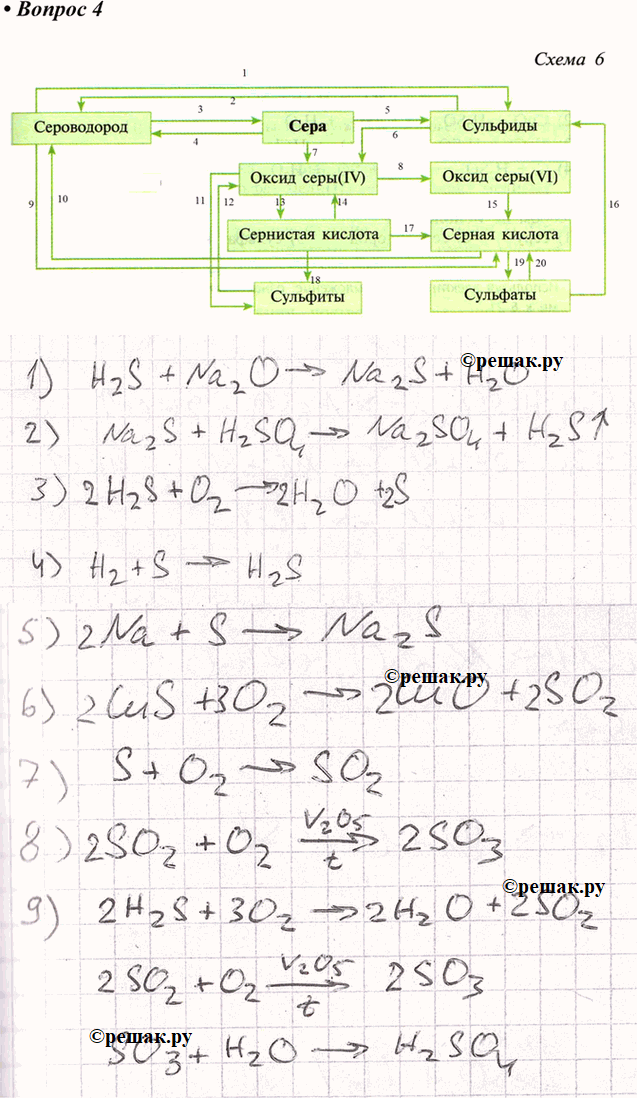 • Вопрос 4
Схема 6
1
2
3
4
5
6
Сероводород
Сера
Сульфиды
7
Оксид серы(IV)
8
Оксид серы(VI)
9
10
11
12
13
14
15
16
Сернистая кислота
17
Серная кислота
18
19
20
Сульфиты
Сульфаты
©решак.ру
1) H₂S + Na₂O → Na₂S + H₂O
2) Na₂S + H₂SO₄ → Na₂SO₄ + H₂S↑
3) 2H₂S + O₂ → 2H₂O + 2S
4) H₂ + S → H₂S
5) 2Na + S → Na₂S
©решак.ру
6) 2CuS + 3O₂ → 2CuO + 2SO₂
7) S + O₂ → SO₂
8) 2SO₂ + O₂ V₂O₅ → t 2SO₃
©решак.ру
9) 2H₂S + 3O₂ → 2H₂O + 2SO₂
2SO₂ + O₂ V₂O₅ → t 2SO₃
©решак.ру
SO₃ + H₂O → H₂SO₄